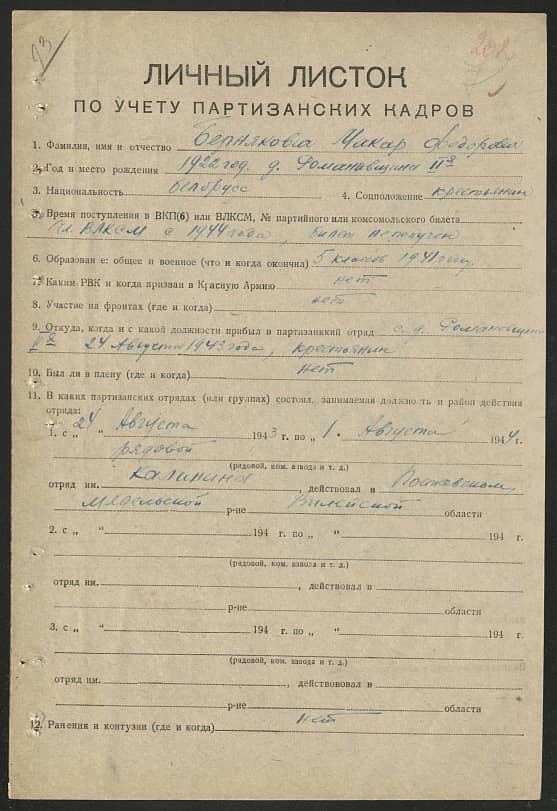 93
ЛИЧНЫЙ ЛИСТОК
ПО УЧЕТУ ПАРТИЗАНСКИХ КАДРОВ
1. Фамилия, имя и отчество Макар Федорович
2. Год и место рождения 1922 год. д. Романовщина II-я
3. Национальность белорусс 4. Соцположение крестьянин
5. Время поступления в ВКП(б) или ВЛКСМ, № партийного или комсомольского билета
Чл. ВЛКСМ с 1944 года, билет не получен
6. Образован е: общее и военное (что и когда окончил) 5 классов 1941 году.
7. Каким РВК и когда призван в Красную Армию нет
8. Участие на фронтах (где и когда) нет
9. Откуда, когда и с какой должности прибыл в партизанкий отряд с д. Романовщина
II-я 24 Августа 1943 года, крестьянин
10. Был ли в плену (где и когда) нет
11. В каких партизанских отрядах (или группах) состоял, занимаемая должность и район действия
отряда:
1. с „ 24 “ Августа 1943 г. по „ 1 “ Августа 1944 г.
рядовой
(рядовой, ком. взвода и т. д.)
отряд им. Калинина, действовал в Поставском,
Мядельской р-не Вилейской области
2. с „ “ 194 г. по „ “ 194 г.
(рядовой, ком. взвода и т. д.)
отряд им. , действовал в
р-не области
3. с „ “ 194 г. по „ “ 194 г.
(рядовой, ком. взвода и т. д.)
отряд им. , действовал в
р-не области
12. Ранения и контузии (где и когда) нет